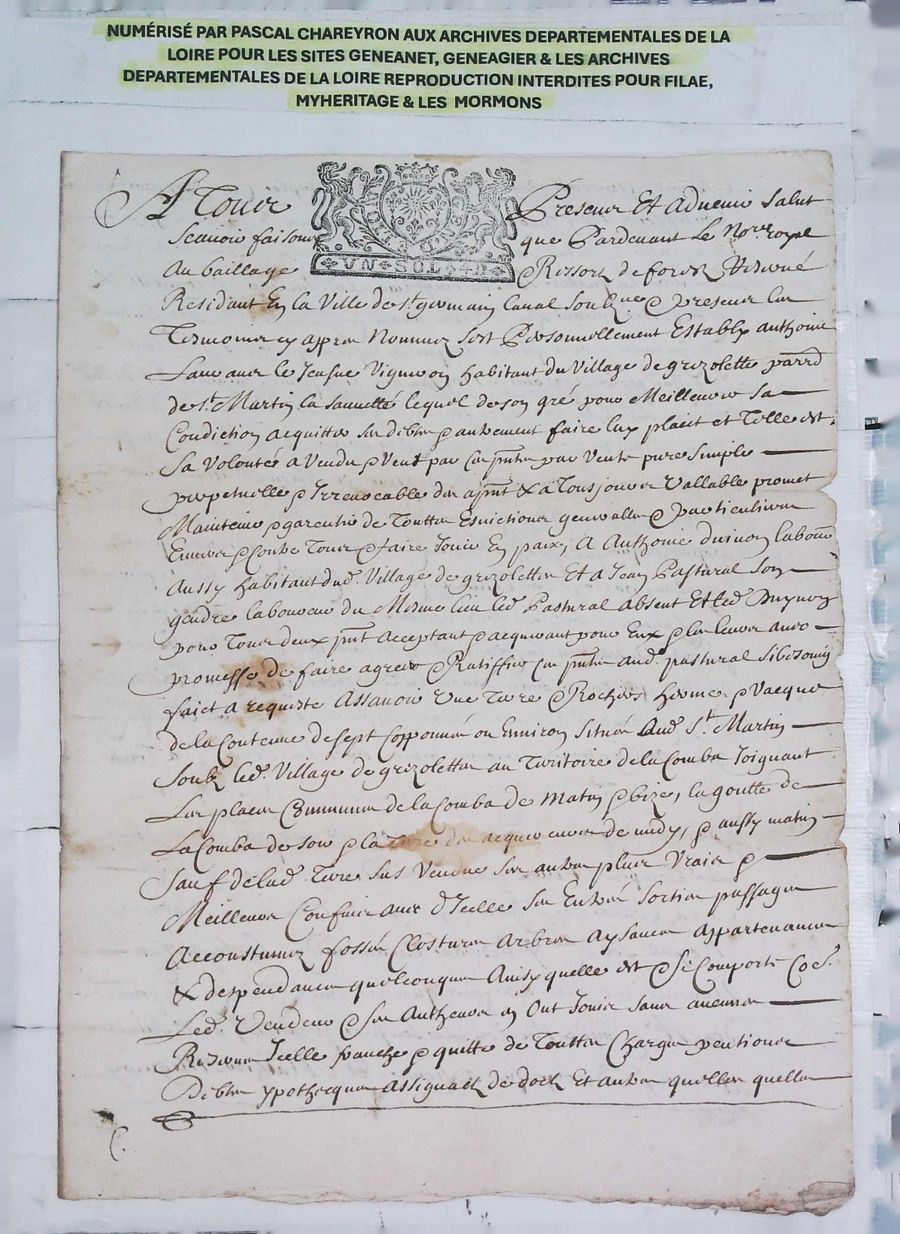 NUMÉRISÉ PAR PASCAL CHAREYRON AUX ARCHIVES DEPARTEMENTALES DE LA
LOIRE POUR LES SITES GENEANET, GENEAGIER & LES ARCHIVES
DEPARTEMENTALES DE LA LOIRE REPRODUCTION INTERDITES POUR FILAE,
MYHERITAGE & LES MORMONS
A Tous Presens Et Advenir Salut
Scavoir faisons que Pardevant Le Nore royal
Au bailliage & Ressort de forestz Reservé
Residant En la Ville de st germain Laval Soubzne & presens les
Tesmoins cy apres Nommez fert Personnellement Establi anthoine
le Jeufne Vigneron habitant du Village de grezolette parr
de st Martin la sauveté lequel de son gré pour Meilleure sa
Condiction acquitter ses debtes & autrement faire luy plaict et Telle est
Sa Volonté a Vendu & Vent par Ces pntes par Vente pure Simple
perpetuelle & Irrevocable des apnt & a Tousjours Vallable promet
Maintenir & garentir de Touttes Esvictions generalles & particulieres
Envers & Contre Tous & faire Jouir En paix, A Anthoine laboure
Aussy habitant dud. Village de grezolettes Et a Jean Pastural Son
gendre laboureur du Mesme lieu led. Pastural absent Et led.
pour Tous deux pnt Acceptant & acquerant pour Eux & les leurs avec
promesse de faire agreer & Ratiffier Ces pntes aud. pastural sibesoing
faict a requiste Assavoir Une Terre & Rochers herme & Vacque
de la Contenue de sept Copponnées ou Environ Situés Aud. St. Martin
Soubz led. Village de grezolettes au Territoire de la Comba Joignant
Les places Communes de la Comba de Matin & bize, la goutte de
La Comba de soir & la Terre des acquereurs de midy, & aussy matin
Sauf de lad. Terre sus Vendue Ses autres plus Vrais &
Meilleurs Confins avec d'Icelle Ses Entrés Sorties passages
Accoustumez fossés Clostures Arbres Aysances Appartenances
& despendances quelconques Ainsy quelle est & se Comporte
Led. Vendeur & ses Autheurs en Ont Jouis sans aucunes
Reserves Icelle franche & quitte de Touttes Charges pentions
Debtes ypothecques Assignatz de dotz Et autres quelles quelles